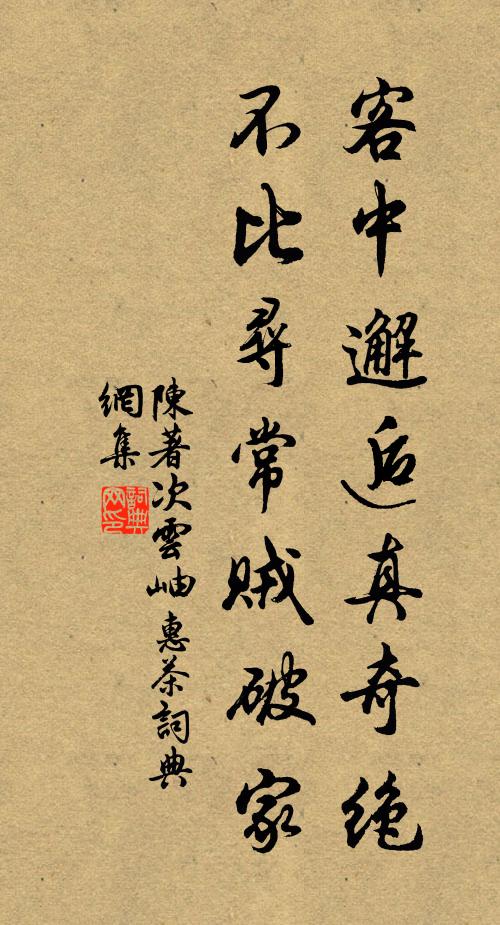 客中邂逅真奇絶
不比尋常賊破家
陳著次雲岫惠茶詞典
網集
詞典
网印